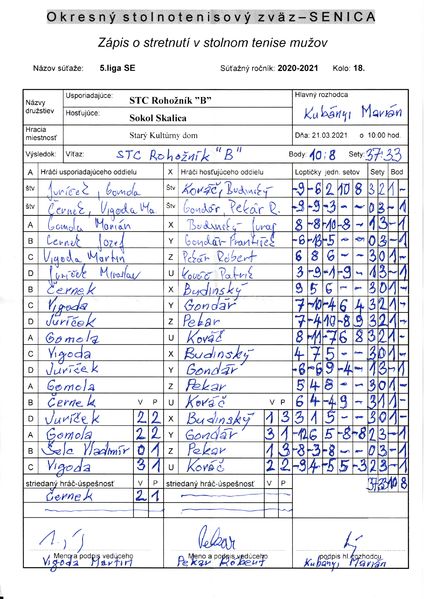 Okresný stolnotenisový zväz – SENICA
Zápis o stretnutí v stolnom tenise mužov
Názov súťaže: 5.liga SE Súťažný ročník: 2020-2021 Kolo: 18.
Názvy družstiev Usporiadajúce: STC Rohožník "B" Hlavný rozhodca
Hosťujúce: Sokol Skalica Kubányi Marián
Hracia miestnosť Starý Kultúrny dom Dňa: 21.03.2021 o 10:00 hod.
Výsledok: Víťaz: STC Rohožník "B" Body: 10:8 Sety: 37:33
A Hráči usporiadajúceho oddielu X Hráči hosťujúceho oddielu Loptičky jedn. setov Sety Bod
štv Juríček, Gomola Štv Kováč, Budinský -9 -6 2 10 8 3 2 1 -
štv Černek, Vigoda Ma Štv Gondár, Pekár R. -9 -9 -3 - - 0 3 - 1
A Gomola Marián X Budinský Juraj 8 -8 -10 -8 - 1 3 - 1
B Černek Jozef Y Gondár František -6 -13 -5 - - 0 3 - 1
C Vigoda Martin Z Pekár Robert 6 8 6 - - 3 0 1 -
D Juríček Miroslav U Kováč Patrik 3 -9 -1 -9 - 1 3 - 1
B Černek X Budinský 9 5 6 - - 3 0 1 -
C Vigoda Y Gondár 7 -10 -4 6 4 3 2 1 -
D Juríček Z Pekar 7 -4 10 -8 9 3 2 1 -
A Gomola U Kováč 8 -11 -7 6 8 3 2 1 -
C Vigoda X Budinský 4 7 5 - - 3 0 1 -
D Juríček Y Gondár -6 -6 9 -4 - 1 3 - 1
A Gomola Z Pekar 5 4 8 - - 3 0 1 -
B Černek V P U Kováč V P 6 4 -4 9 - 3 1 1 -
D Juríček 2 2 X Budinský 1 3 3 1 5 - - 3 0 1 -
A Gomola 2 2 Y Gondár 3 1 -12 6 5 -8 -8 2 3 - 1
B Šelc Vladimír 0 1 Z Pekar 1 3 -8 -3 -8 - - 0 3 - 1
C Vigoda 3 1 U Kováč 2 2 -9 4 -5 5 -3 2 3 - 1
striedaný hráč-úspešnosť V P striedaný hráč-úspešnosť V P 37 33 10 8
Černek 2 1
Pekar
Meno a podpis vedúceho Meno a podpis vedúceho podpis hl. rozhodcu
Vigoda Martin Pekár Róbert Kubányi Marián